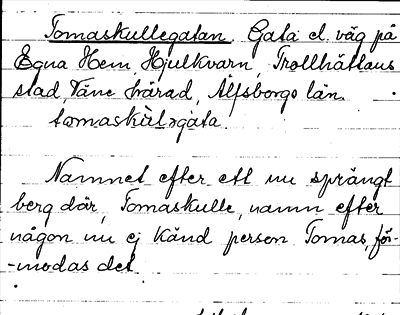 Tomaskullegatan. Gata el. väg på
Egna Hem, Hjulkvarn, Trollhättans
stad, Väne härad, Älfsborgs län.
tomaskùl₂gata.
Namnet efter ett nu sprängt
berg där, Tomaskulle, namn efter
någon nu ej känd person Tomas, för-
-modas det.